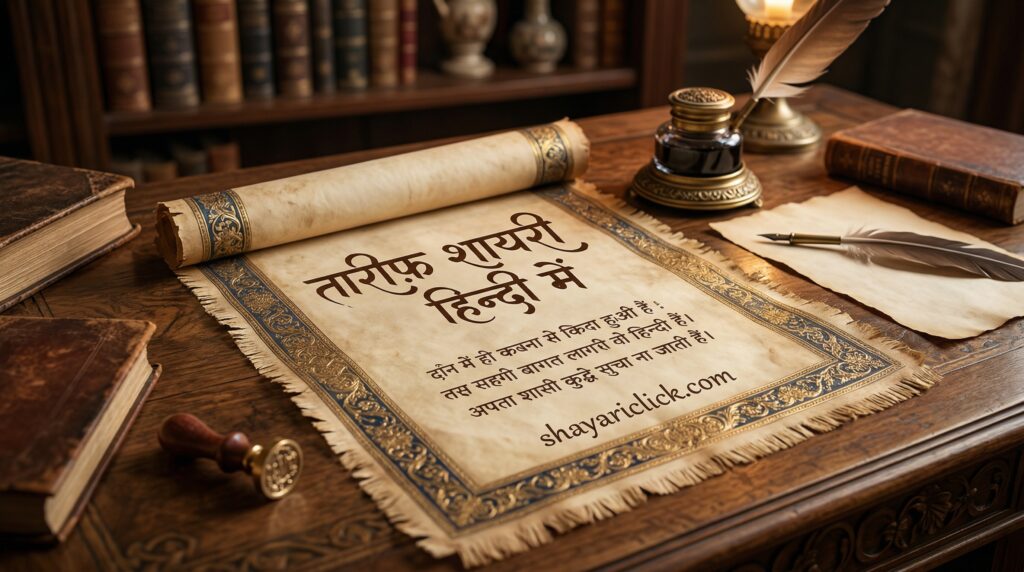 तारीफ़ शायरी
हिन्दी में
दोन में हो कबना से किदा हुओ हैं !
तस सहगी बागत लागरी वो हिन्दी हैं।
अपता शासी कुद्धे सुचा ना जाती हैं।
shayariclick.com